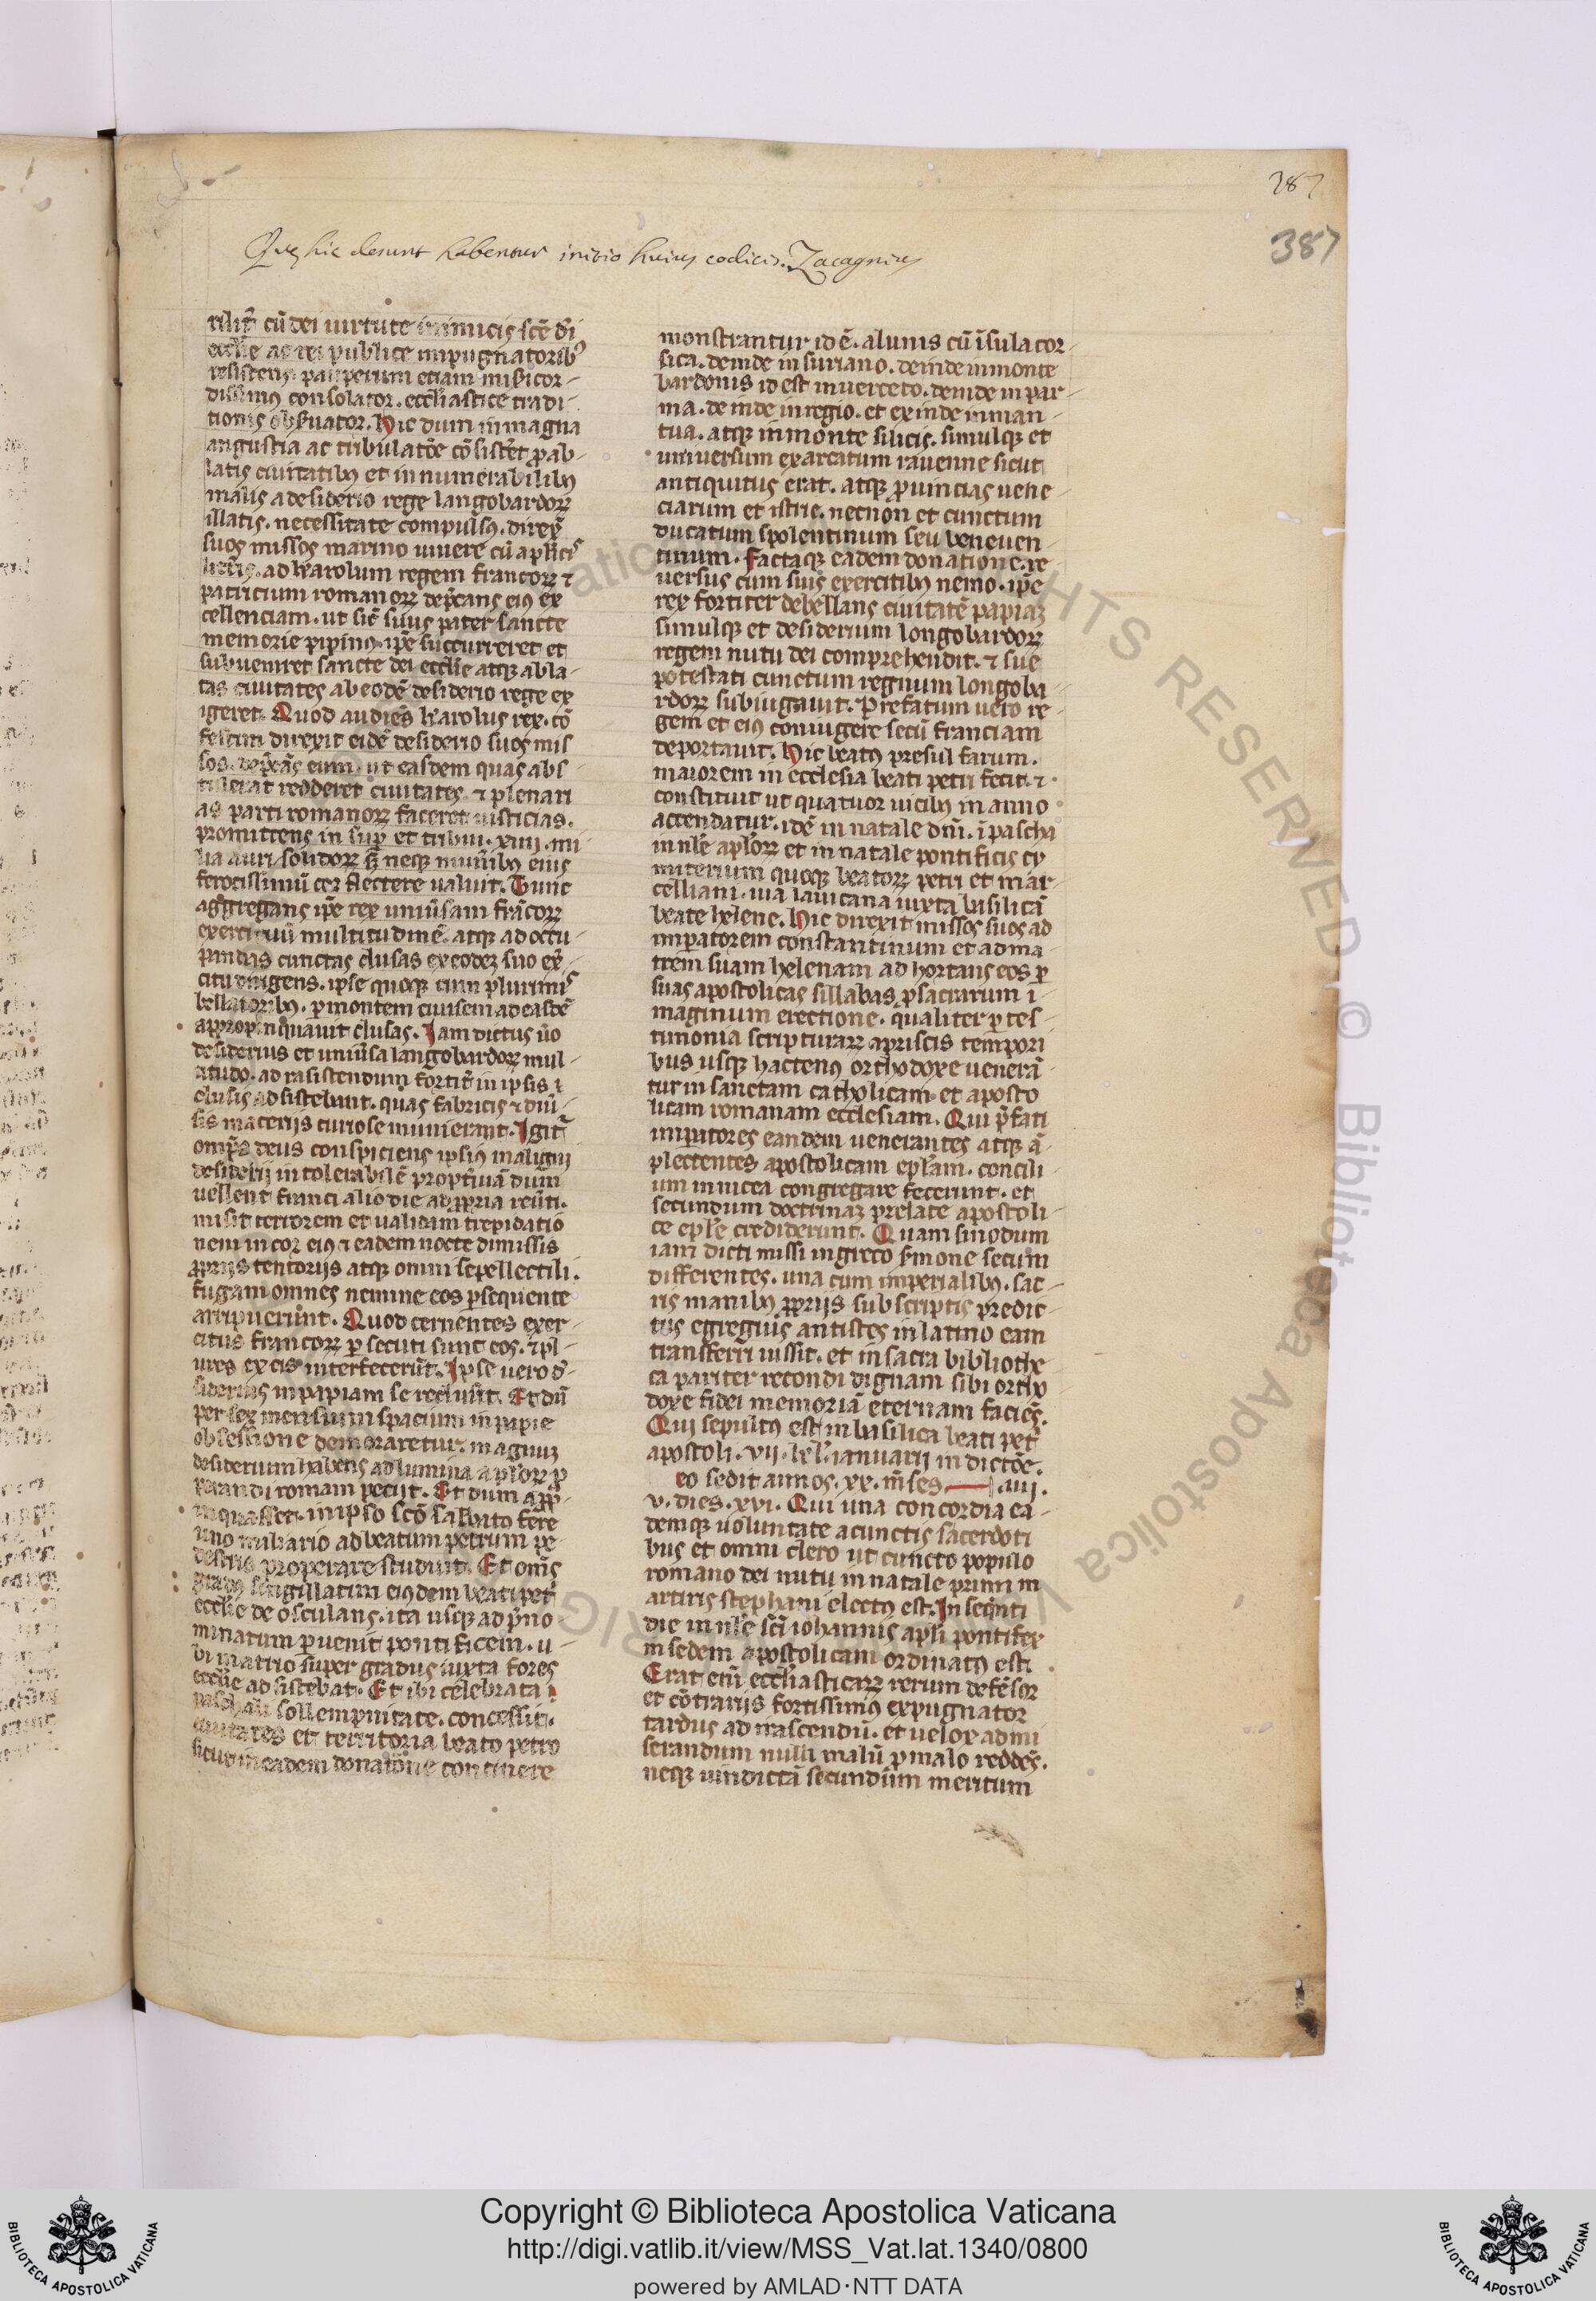 387
387
Quę hic desunt habentur initio huius codicis. Zacagnius
rilit̃ cũ dei uirtute inimicis scẽ d̃i
eccl̃ie ac rei publice impugnatorib᾽
resistens. pauperum etiam miẜicor-
dissimus consolator. eccl̃iastice tradi-
tionis obẜuator. Hic dum in magna
angustia ac tribulatõe cõsistet̃ p̱ ab-
latis ciuitatibꝰ et innumerabilibꝰ
malis a desiderio rege langobardoꝝ
illatis. necessitate compulsꝰ. direx̃
suos missos marino itinere cũ aplic̃
litter̃is. ad kr̃arolum regem francoꝝ ⁊
patricium romanoꝝ dep̃cans eiꝰ ex
cellenciam. ut sic̃ suus pater sancte
memorie pipinꝰ. ip̃e succurreret et
subueniret sancte dei eccl̃ie atqꝫ abla-
tas ciuitates ab eodẽ desiderio rege ex
igeret. Quod audiẽs kr̃arolus rex. cõ
festim direxit eidẽ desiderio suos mis
sos. dep̃cãs eum. ut easdem quas abs-
tulerat redderet ciuitates. ⁊ plenari
as parti romanoꝝ faceret iusticias.
promittens in suꝑ et tribui. xiiij. mi-
lia auri solidoꝝ. ẜ neqꝫ munĩbꝰ eius
ferocissimũ cor flectere ualuit. Tunc
aggregans ip̃e rex uniũsam frãcoꝝ
exercituũ multitudinẽ. atqꝫ ad occu-
pandas cunctas clusas ex eodeꝫ suo ex̃-
citu dirigens. ipse quoqꝫ cum plurimis
bellatoribꝰ. ꝑ montem cinisem ad easdẽ
appropinquauit clusas. Iam dictus ũo
desiderius et uniũsa langobardoꝝ mul-
titudo. ad rasistendum fortit̃ in ipsis ⁊
clusis adsistebant. quas fabricis ⁊ diũ-
sis macerijs curiose munierant. Igit̃
omp̃s deus conspiciens ipsiꝰ maligni
desiderij intolerabilẽ propt̃uiã dum
uellent franci alio die ad ꝓpria reũti.
misit terrorem et ualidam trepidatio
nem in cor eiꝰ ⁊ eadem nocte dimissis
ꝓprijs tentorijs atqꝫ omni sepellectili.
fugam omnes nemine eos ꝑsequente
arripuerunt. Quod cernentes exer-
citus francoꝝ ꝑsecuti sunt eos. ⁊ pl-
ures ex eis interfecerũt. Ipse uero d̃-
siderius in papiam se reclusit̃. Et dũ
per sex mensium spacium in papie
obsessione demoraretur. magnuꝫ
desiderium habens ad lumina apl̃oꝝ ꝓ
perandi romam petijt. Et dum app̃-
inquasset. in ipso scõ sabbato fere
uno miliario ad beatum petrum pe-
destris properare studuit. Et om̃s
gradꝰ singillatim eiꝰdem beati pet̃
eccl̃ie deosculans. ita usqꝫ ad p̃no-
minatum ꝑuenit pontificem. u-
bi in atrio super gradus iuxta fores
eccl̃ie adsistebat. Et ibi celebrata
paschali sollempnitate. concessit.
ciuitates et territoria beato petro
sicut in eadem donatione continere
monstrantur id ẽ. a lunis cũ ĩsula cor-
sica. deinde in suriano. deinde in monte
bardonis id est in uerceto. deinde in par-
ma. deinde in regio. et exinde in man-
tua. atqꝫ in monte silicis. simulqꝫ et
uniuersum exarcatum rauenne sicut
antiquitus erat. atqꝫ ꝓuincias uene-
ciarum et istrie. necnon et cunctum
ducatum spolentinum seu beneuen-
tinum. Factaqꝫ eadem donatione. re-
uersus cum suis exercitibꝰ nemo. ip̃e
rex fortiter debellans ciuitatẽ papiaꝫ
simulqꝫ et desiderium longobardoꝝ
regem nutu dei comprehendit. ⁊ sue
potestati cunctum regnum longoba-
rdoꝝ subiugauit. Prefatum uero re-
gem et eiꝰ coniugere secũ franciam
deportauit. Hic beatꝰ presul farum.
maiorem in ecclesia beati petri fecit. ⁊
constituit ut quatuor uicibꝰ in anno
accendatur. idẽ in natale dñi. ĩ pascha
in nl̃e apl̃oꝝ et in natale pontificis cy
miterium quoqꝫ beatoꝝ petri et mar-
celliani. uia lauicana iuxta basilicã
beate helene. Hic direxit missos suos ad
imꝑatorem constantinum et ad ma-
trem suam helenam ad hortans eos ꝑ
suas apostolicas sillabas ꝓ sacrarum i-
maginum erectione. qualiter ꝑ tes-
timonia scripturaꝝ a priscis tempori
bus usqꝫ hactenꝰ orthodoxe uenerã-
tur in sanctam catholicam et aposto
licam romanam ecclesiam. Qui p̃fati
imꝑatores eandem uenerantes atqꝫ ã-
plectentes apostolicam epl̃am. concili-
um in nicea congregare fecerunt. et
secundum doctrinaꝫ prelate apostoli-
ce epl̃e crediderunt. Quam sinodum
iam dicti missi in greco ẜmone secum
differentes. una cum imperialibꝰ. sac-
ris manibꝰ ꝓprijs subscriptis predic-
tus egregius antistes in latino eam
transferri iussit. et in sacra bibliothe-
ca pariter recondi dignam sibi ortho
doxe fidei memoriã eternam faciẽs.
Qui sepultꝰ est in basilica beati pet̃
apostoli. vij. kl̃. ianuarij in dictõe.
eo sedit annos. xx. m̃ses. iiij.
v. dies. xvi. Qui una concordia ea-
demqꝫ uoluntate a cunctis sacerdoti
bus et omni clero ut cuncto populo
romano dei nutu in natale primi m
artiris stephani electꝰ est. In seq̃nti
die in nl̃e sc̃i iohannis apl̃i pontifex
in sedem apostolicam ordinatꝰ est.
Erat eni᷑ eccl̃iasticaꝝ rerum defẽsor
et cõtrarijs fortissimꝰ expugnator
tardus ad irascendũ. et uelox ad mi
serandum nulli malũ ꝓ malo reddẽs.
neqꝫ uindictã secundum meritum
Copyright © Biblioteca Apostolica Vaticana
http://digi.vatlib.it/view/MSS_Vat.lat.1340/0800
powered by AMLAD·NTT DATA
BIBLIOTECA APOSTOLICA VATICANA
BIBLIOTECA APOSTOLICA VATICANA